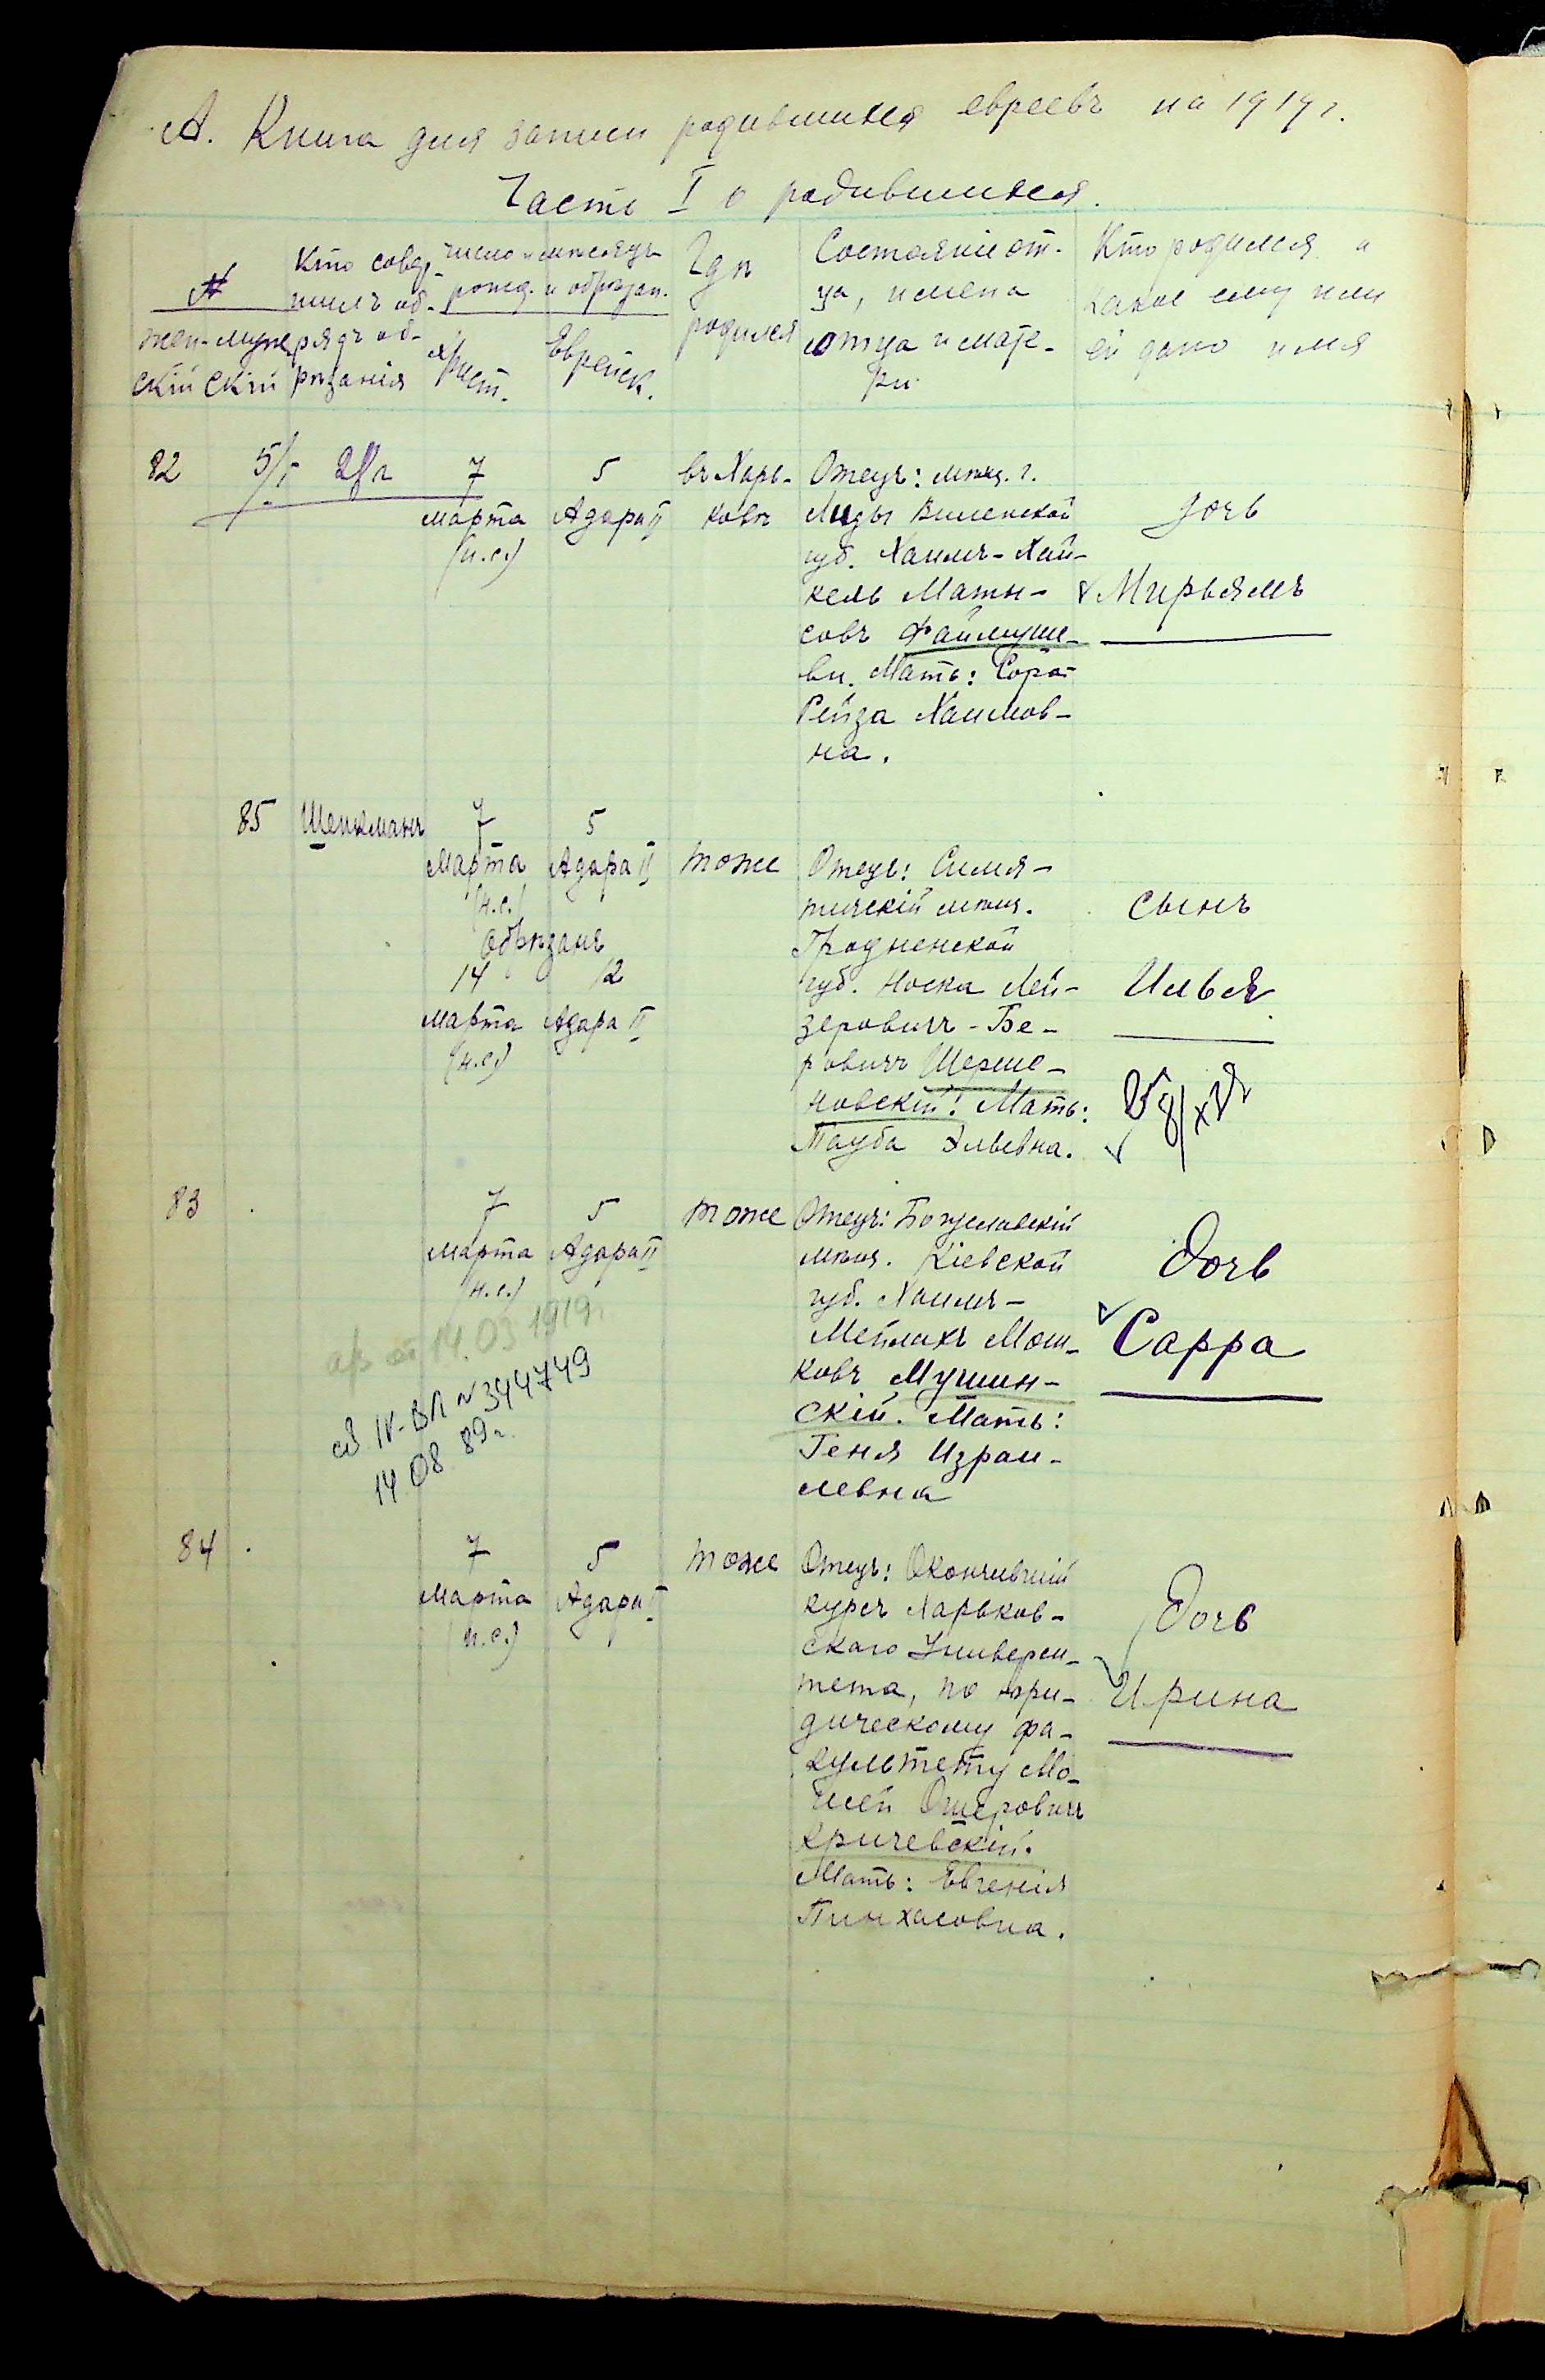 А. Книга для записи родившихся евреевъ на 1919 г.
Часть I о родившихся.
№
жен-
скій
муж
скій
Кто совер-
шилъ об-
рядъ об-
рѣзанія
число и мѣсяцъ
рожд. и обрѣзан.
Христ.
Еврейск.
Гдѣ
родился
Состояніе от-
ца, имена
отца и мате-
ри
Кто родился и
какое ему или
ей дано имя
82
5/I 28 г
7
Марта
(н.с.)
5
Адара II
въ Харь-
ковѣ
Отецъ: мѣщ. г.
Лиды Виленской
губ. Хаимъ-Хай-
кель Маты-
совъ Файлуше-
вич. Мать: Сора-
Рейза Хаимов-
на.
дочь
Мирьямъ
85
Шейкманъ
7
Марта
(н.с.)
5
Адара II
Обрѣзанъ
14
Марта
(н.с.)
12
Адара II
тоже
Отецъ: Семя-
тичскій мѣщ.
Гродненской
губ. Носка Лей-
зеровичъ-Бе-
ровичъ Шерше-
новскій. Мать:
Тауба Эльевна.
сынъ
Илья
83
7
Марта
(н.с.)
5
Адара II
тоже
Отецъ: Богуславскій
мѣщ. Кіевской
губ. Хаимъ-
Мейлахъ Мош-
ковъ Мушин-
скій. Мать:
Геня Израи-
левна
дочь
Сарра
14.03 1919 г
св IV-ВЛ № 344749
14 08 89 г.
84
7
Марта
(н.с.)
5
Адара II
тоже
Отецъ: Окончившій
курсъ Харьков-
скаго Универси-
тета, по юри-
дическому фа-
культету Мо-
исей Ошеровичъ
Кричевскій.
Мать: Евгенія
Пинхасовна.
дочь
Ирина